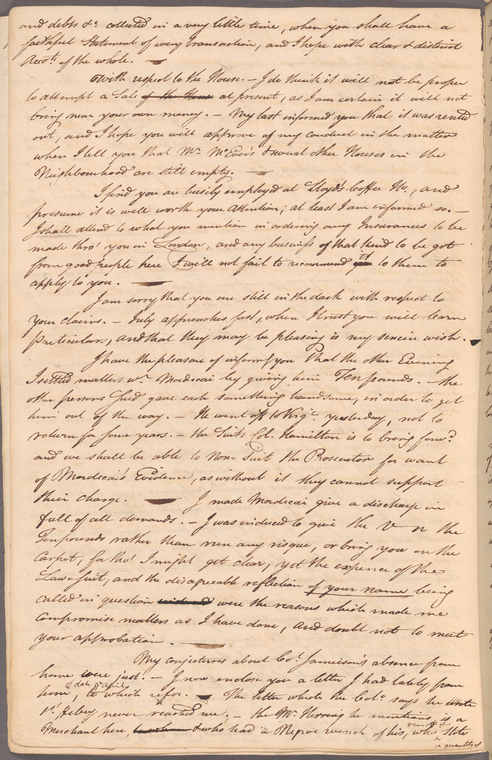 and debts &c. collected in a very little time, when you shall have a
faithful Statement of every transaction, and I hope with clear & distinct
Acco.ts of the whole. —
With respect to the House. — I do think it will not be proper
to attempt a Sale of the House at present, as I am certain it will not
bring near your own money. — My last informed you that it was rented
out, and I hope you will approve of my conduct in the matter
when I tell you that Mr. McEvers & several other Houses in the
Neighbourhood are still empty. —
I find you are busily employed at Lloyd's Coffee Ho., and
presume it is well worth your attention; at least I am informed so. —
I shall attend to what you mention in ordering any Insurances to be
made thro' you in London, and any business of that kind to be got
from good people here I will not fail to recommend it to them to
apply to you. —
I am sorry that you are still in the dark with respect to
your claims. — July approaches fast, when I trust you will learn
particulars, and that they may be pleasing is my sincere wish.
I have the pleasure of inform.g you that the other Evening
I settled matters w.th Mordecai by giving him Ten pounds. — the
other persons Sued gave each something handsome, in order to get
him out of the way. — He went yesterday, not to
return for some years. — the Suit Col. Hamilton is to bring forw.d
and we shall be able to Non-Suit the Prosecutor for want
of Mordecai's Evidence, as without it they cannot support
their charge. — I made Mordecai give a discharge in
full of all demands. — I was induced to give the the
Ten pounds rather than run any risque, or bring you on the
Carpet, for tho' I might get clear, yet the expence of the
Law Suit, and the disagreeable reflection of your name being
called in question were the reasons which made me
compromise matters as I have done, and doubt not to meet
your approbation. —
My conjectures about Co.l Jamieson's absence from
home were just. — I now enclose you a letter I had lately from
him, dat.d April, to which refer. — The letter which the Col.o says he wrote
1st. feb.y never reached me. — the Mr. Herring he mentions is a
Merchant here, & who had a Negroe wench of his, who stole
a quantity of